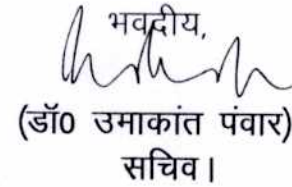 भवदीय,
(डॉ0 उमाकांत पंवार)
सचिव।